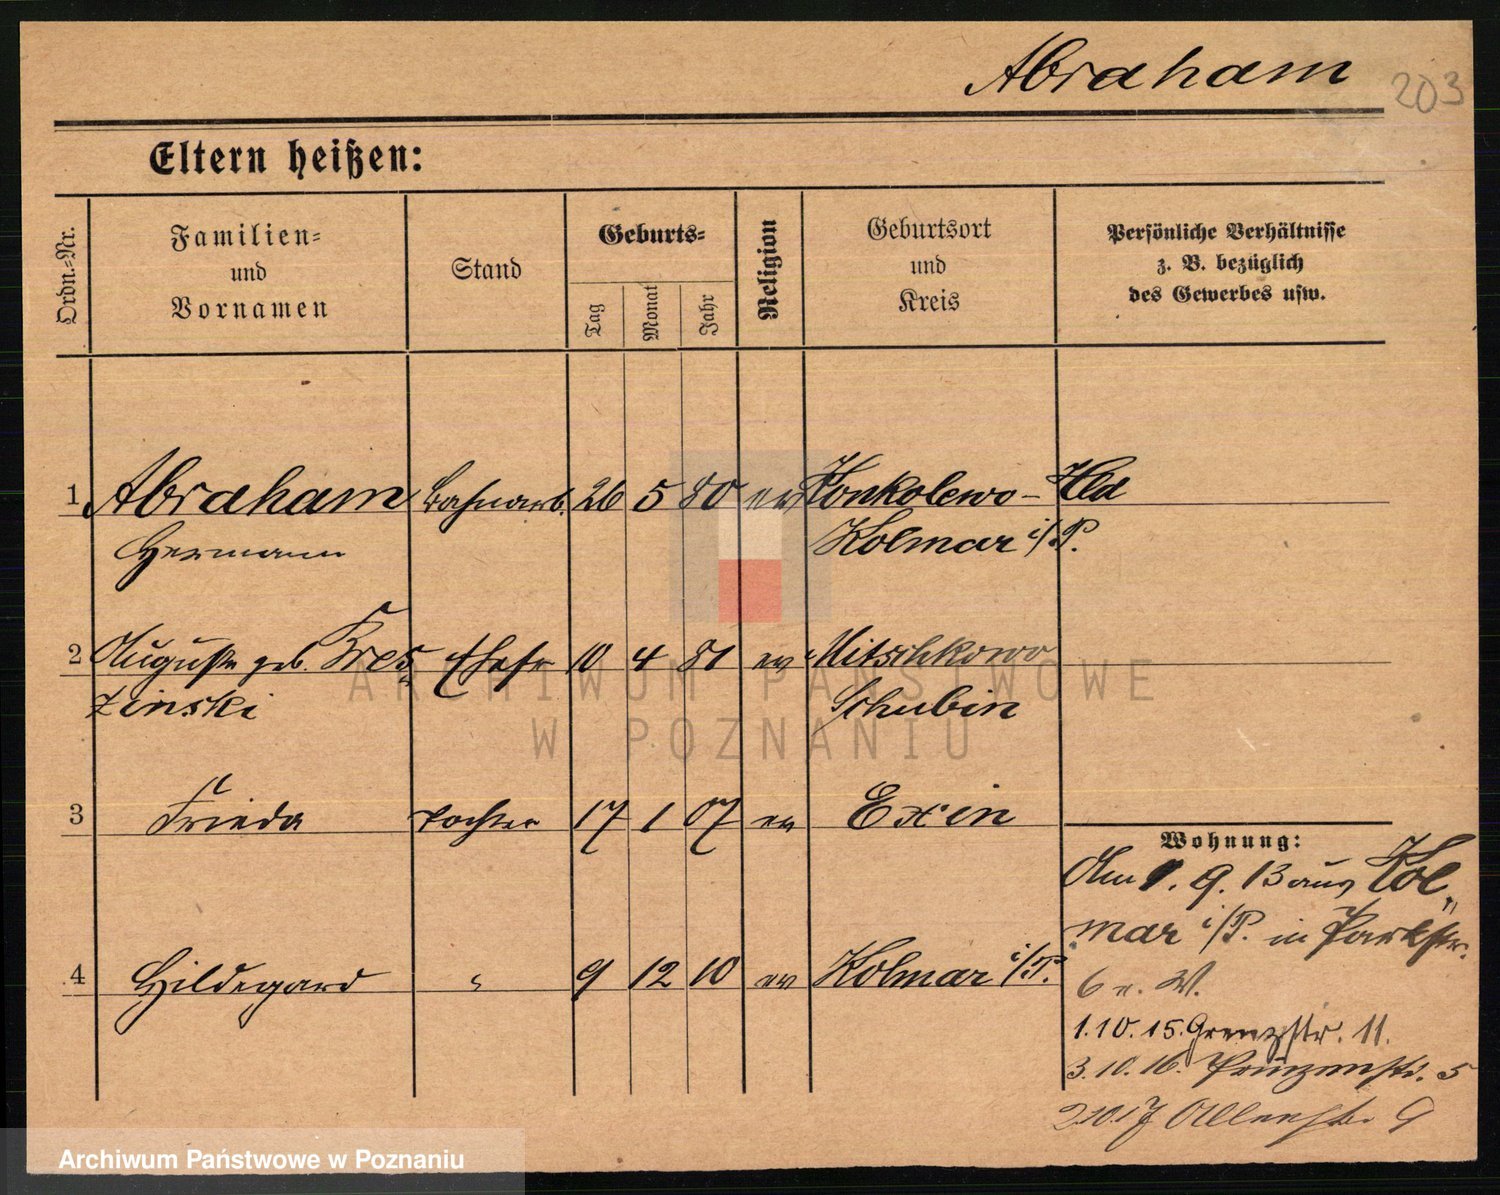 Abraham
203
Eltern heißen:
Ordn.-Nr.
Familien-
und
Vornamen
Stand
Geburts-
Tag
Monat
Jahr
Religion
Geburtsort
und
Kreis
Persönliche Verhältnisse
z. B. bezüglich
des Gewerbes usw.
1 Abraham Bahnarb. 26 5 80 ev Konkolewo-Hld
Hermann Kolmar i/P.
2 Auguste geb. Kres= Ehefr 10 4 81 ev Mitschkowo
zinski Schubin
3 Frieda Tochter 17 1 07 ev Exin
4 Hildegard " 9 12 10 ev Kolmar i/P.
Wohnung:
Am 1. 9. 13 aus Kol=
mar i/P. in Parkstr.
6 W.
1.10.15. Grenzstr. 11.
3.10.16. Prinzenstr. 5
2.10.17 9
ARCHIWUM PAŃSTWOWE
W POZNANIU
Archiwum Państwowe w Poznaniu